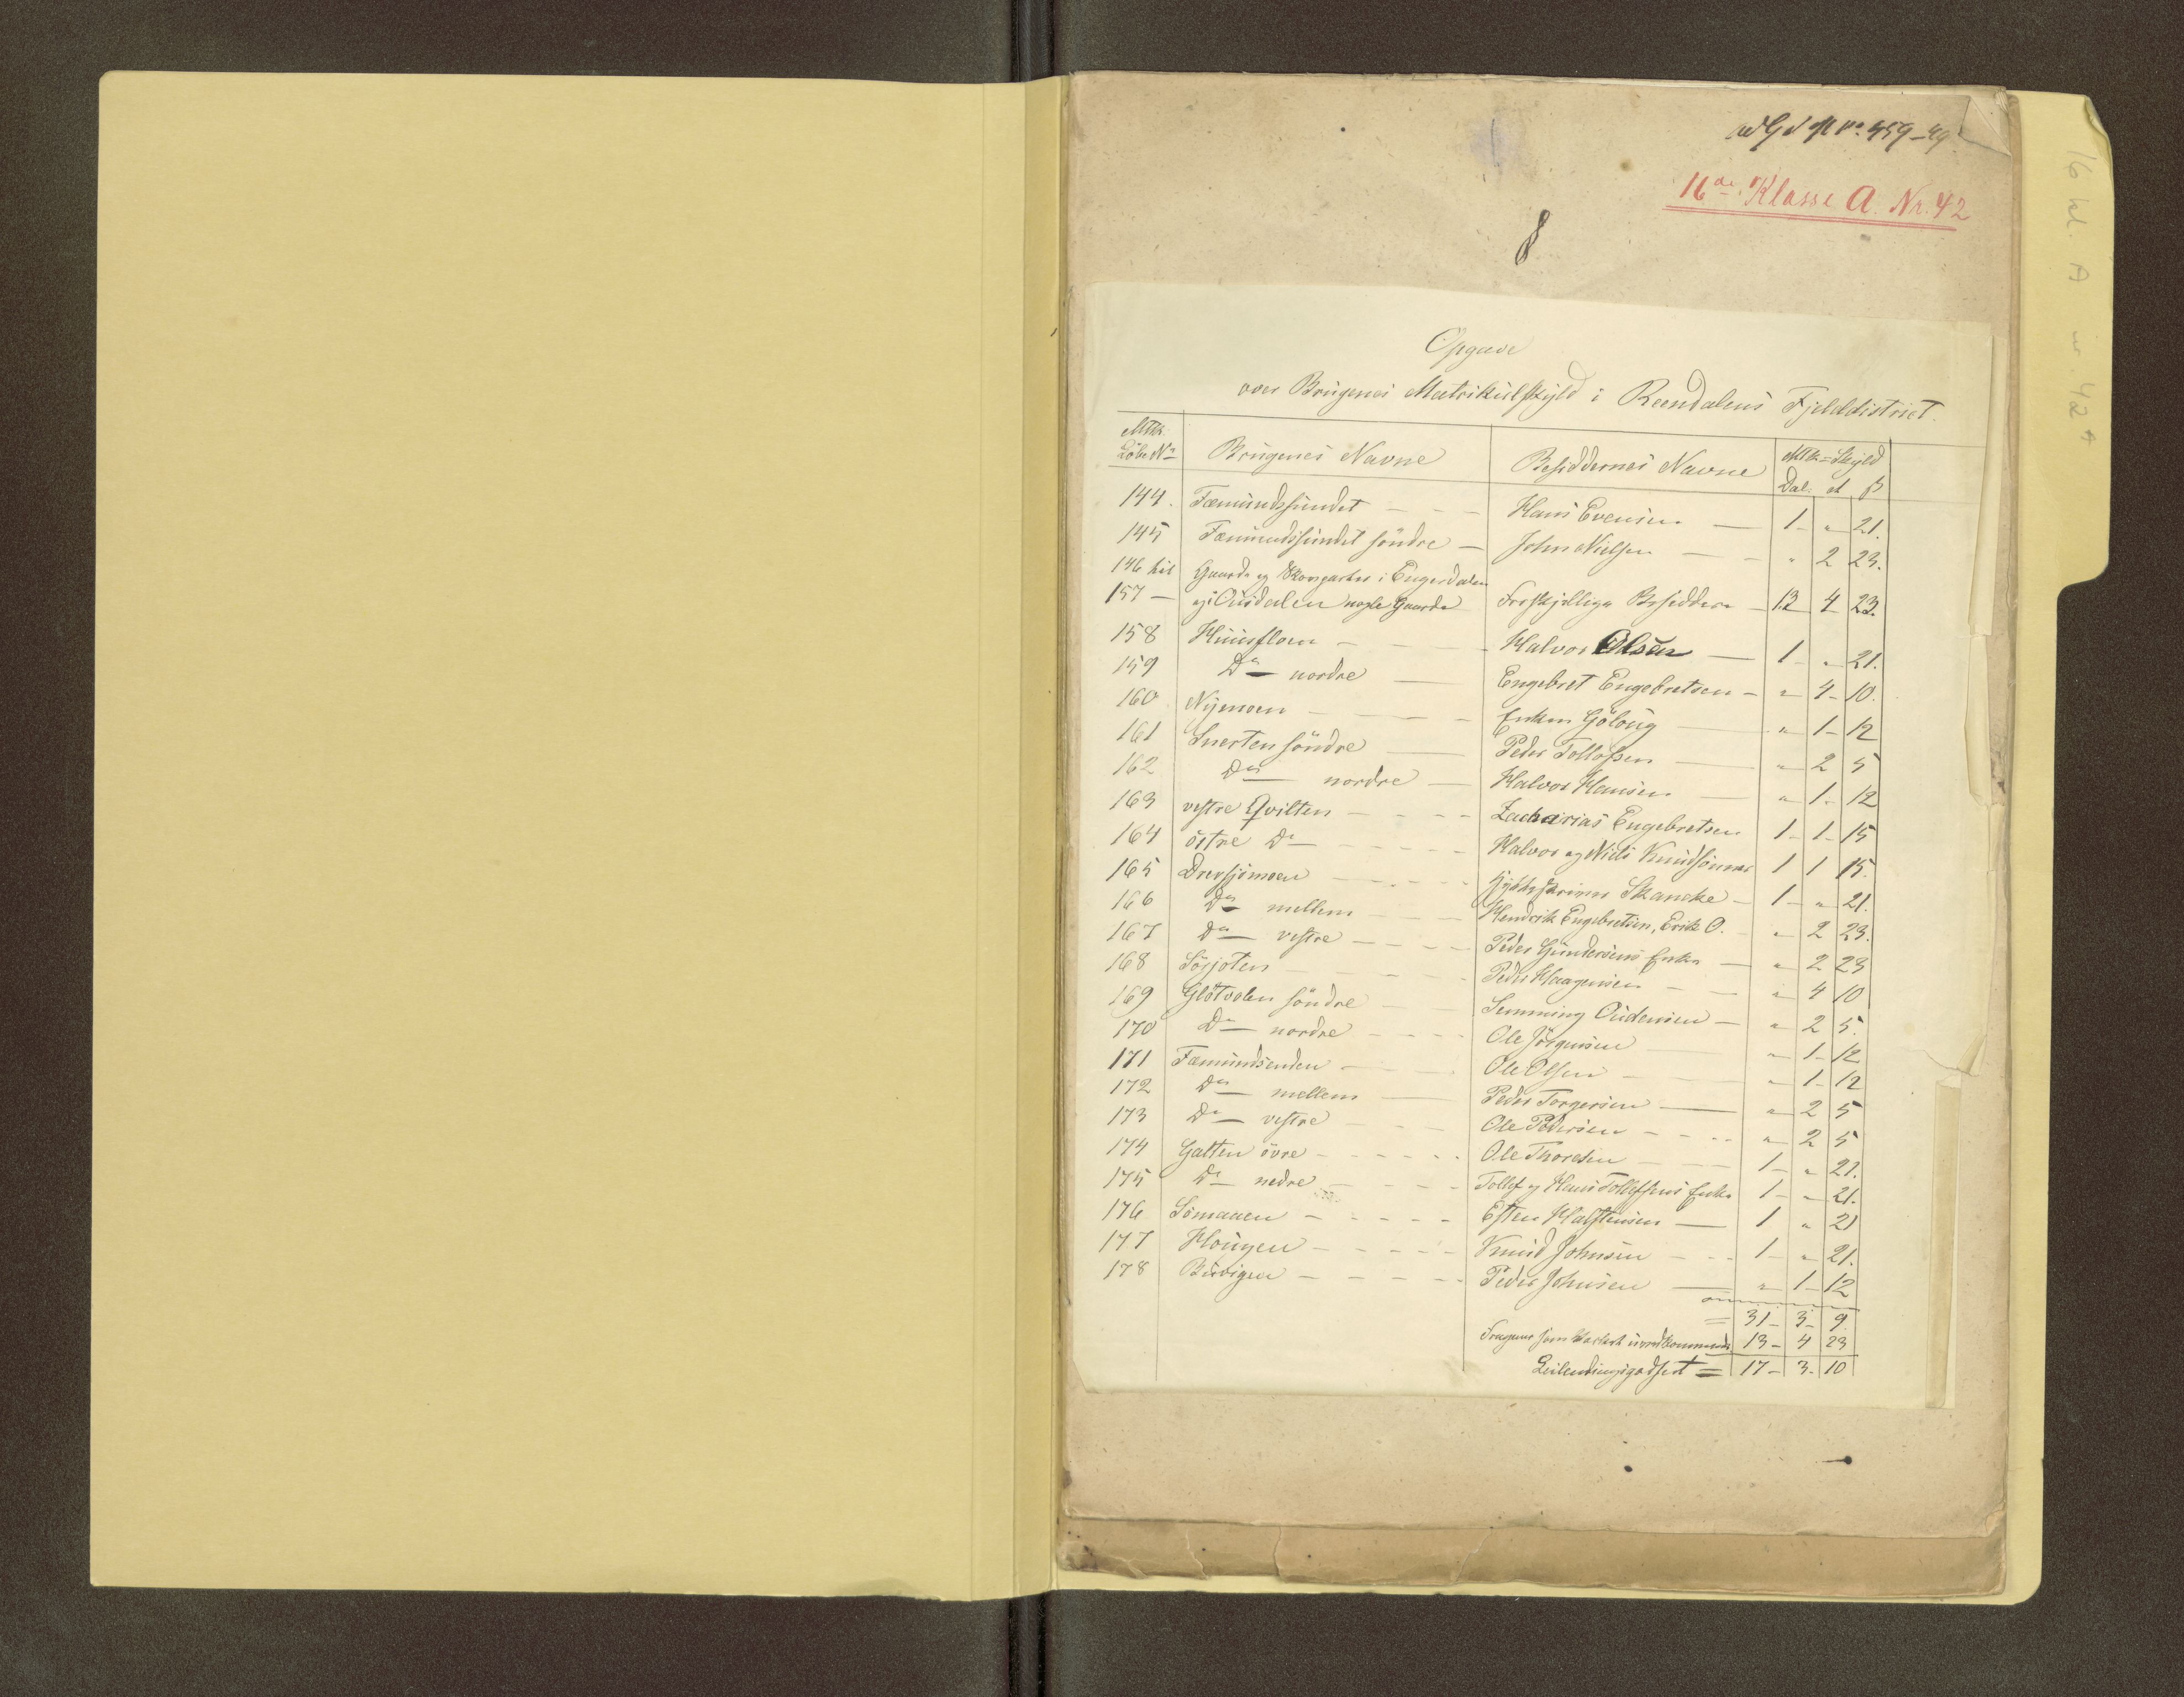 16de Klasse A. Nr. 42
8
Opgave
over Brugenes Matrikulskyld i Rendalens Fjelddistrict.
Mtk. Löbe No | Brugenes Navne | Besiddernes Navne | Mtk=Skyld
Dal. ort ß
144. Fæmundssundet - - - Hans Evensen — 1 - " - 21.
145 Fæmundssundet söndre — John Nielsen — " 2 23.
146 til Gaarde og Skovparter i Engerdalen
157 — og i Öusdalen nogle Gaarde Forskjellige Besiddere — 13 4 23.
158 Huusfloen - - - Halvor Olsen — 1 - " - 21.
159 Do — nordre — Engebret Engebretsen - " - 4 - 10.
160 Nymoen - - - Enken Gölöug — " - 1 - 12
161 Snerten söndre — Peder Tollofsen — " - 2 5
162 Do — nordre — Halvor Hansen — " 1 - 12
163 vestre Qvilten - - - - Zacharias Engebretsen 1 - 1 - 15
164 östre Do - - - - Halvor og Niels Knudsönner 1 1 15.
165 Drevsjömoen - - - - Skancke - 1 - " - 21.
166 Do mellem - - - Hendrik Engebretsen, Erik O. - " - 2 23.
167 Do — vestre - - - - Peder Gundersens Enke — " - 2 23
168 Sörjoten - - - - Peder Haagensen - - " 4 10
169 Glötvolen söndre — Semming Oudensen - " 2 5.
170 Do — nordre - - - - Ole Jörgensen " - 1 - 12
171 Fæmundsenden - - - Ole Olsen - - " - 1 - 12
172 Do — mellem — Peder Torgersen — " - 2 5
173 Do — vestre - - - Ole Pedersen - - - - " - 2 5
174 Galten övre - - - - - - Ole Thoresen - - - 1 - " - 21.
175 Do — nedre - - - - Tollef og Hans Tollefsens Enke 1 - " - 21.
176 Sömaaen - - - - - Esten Halstensen — 1 " 21
177 Hougen - - - - - Knud Johnsen - - - 1 - " - 21.
178 Burigen - - - - - Peder Johnsen — " - 1 - 12
= 31 - 3 - 9
13 - 4 23
Leilendingsgodset = 17 - 3 - 10
16 kl. A nr. 42